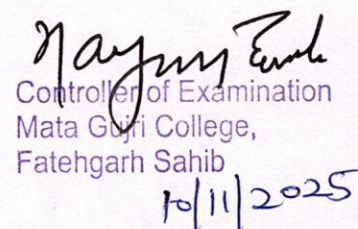 Controller of Examination
Mata Gujri College,
Fatehgarh Sahib
10/11/2025